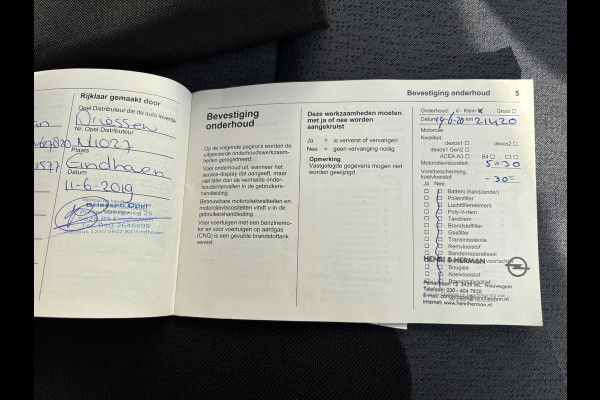 Rijklaar gemaakt door
Opel Distributeur die de auto levert
Driessen
Nr. Opel Distributeur
N1027
Plaats
Eindhoven
Datum
11-6-2019
Driessen Opel
5602 BG Eindhoven
Bevestiging
onderhoud
Op de volgende pagina's worden de
uitgevoerde onderhoudswerkzaam-
heden geregistreerd.
Voer onderhoud uit, wanneer het
service-display dat aangeeft, maar
niet later dan de vermelde onder-
houdsintervallen in de gebruikers-
handleiding.
Betrouwbare motoroliekwaliteiten en
motorolieviscositeiten vindt u in de
gebruikershandleiding.
Voor voertuigen met een benzinemo-
tor en voor voertuigen op aardgas
(CNG) is een gevulde brandstoftank
vereist.
Deze werkzaamheden moeten
met ja of nee worden
aangekruist
Ja = is ververst of vervangen
Nee = geen vervanging nodig
Opmerking
Vastgelegde gegevens mogen niet
worden gewijzigd.
Bevestiging onderhoud 5
Onderhoud: Klein Groot
Datum 19-6-20 km 21420
Motorolie:
Kwaliteit:
dexos1 dexos2
dexos1 Gen2
ACEA A3 B4 C3
Motorolieviscositeit 5 W 30
Vorstbescherming,
koelvloeistof -30 °C
Ja Nee
Batterij (handzender)
Pollenfilter
Luchtfilterelement
Poly-V-riem
Tandriem
Brandstoffilter
Gasfilter
Transmissieolie
Remvloeistof
Bandenreparatieset
HENRI & HERMAN
Bougies
Koelvloeistof
Nieuwegein
Telefoon: 030 - 604 7620
Internet: www.henriherman.nl